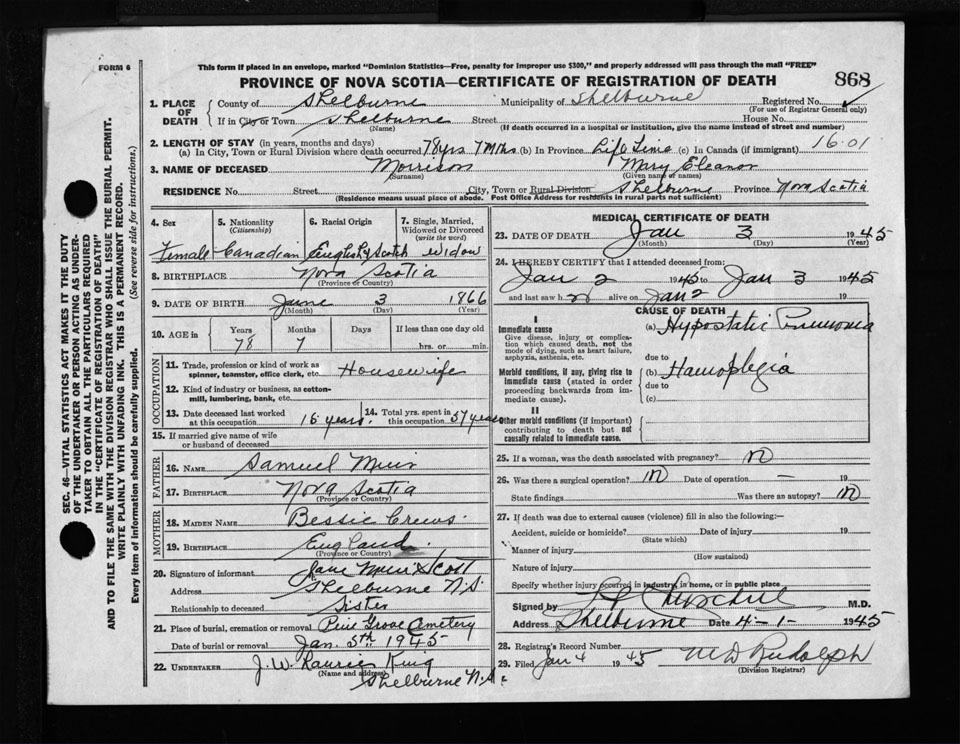 FORM 6
This form if placed in an envelope, marked "Dominion Statistics—Free, penalty for improper use $300," and properly addressed will pass through the mail "FREE"
PROVINCE OF NOVA SCOTIA—CERTIFICATE OF REGISTRATION OF DEATH 868
1. PLACE OF DEATH
County of Shelburne Municipality of Shelburne Registered No.
(For use of Registrar General only)
If in City or Town Shelburne Street House No.
(Name) (If death occurred in a hospital or institution, give the name instead of street and number)
2. LENGTH OF STAY (in years, months and days)
(a) In City, Town or Rural Division where death occurred 78 yrs 7 Mths (b) In Province Life Time (c) In Canada (if immigrant) 16-01
3. NAME OF DECEASED Morrison Mary Eleanor
(Surname) (Given name or names)
RESIDENCE No. Street City, Town or Rural Division Shelburne Province Nova Scotia
(Residence means usual place of abode. Post Office Address for residents in rural parts not sufficient)
SEC. 46—VITAL STATISTICS ACT MAKES IT THE DUTY
OF THE UNDERTAKER OR PERSON ACTING AS UNDER-
TAKER TO OBTAIN ALL THE PARTICULARS REQUIRED
IN THE "CERTIFICATE OF REGISTRATION OF DEATH"
AND TO FILE THE SAME WITH THE DIVISION REGISTRAR WHO SHALL ISSUE THE BURIAL PERMIT.
WRITE PLAINLY WITH UNFADING INK. THIS IS A PERMANENT RECORD.
Every item of information should be carefully supplied. (See reverse side for instructions.)
4. Sex 5. Nationality (Citizenship) 6. Racial Origin 7. Single, Married, Widowed or Divorced (write the word)
Female Canadian English & Scotch Widow
8. BIRTHPLACE Nova Scotia
(Province or Country)
9. DATE OF BIRTH June 3 1866
(Month) (Day) (Year)
10. AGE in Years Months Days If less than one day old
78 7 hrs. or min.
OCCUPATION
11. Trade, profession or kind of work as spinner, teamster, office clerk, etc. Housewife
12. Kind of industry or business, as cotton-mill, lumbering, bank, etc.
13. Date deceased last worked at this occupation 15 years. 14. Total yrs. spent in this occupation 57 years
15. If married give name of wife or husband of deceased
FATHER
16. NAME Samuel Muir
17. BIRTHPLACE Nova Scotia
(Province or Country)
MOTHER
18. MAIDEN NAME Bessie Crews
19. BIRTHPLACE England
(Province or Country)
20. Signature of informant Jane Muir Scott
Address Shelburne N.S.
Relationship to deceased Sister
21. Place of burial, cremation or removal Pine Grove Cemetery
Date of burial or removal Jan. 5th 1945
22. UNDERTAKER J. W. Laurie King
(Name and address) Shelburne N.S.
MEDICAL CERTIFICATE OF DEATH
23. DATE OF DEATH Jan 3 1945
(Month) (Day) (Year)
24. I HEREBY CERTIFY that I attended deceased from:
Jan 2 1945 to Jan 3 1945
and last saw her alive on Jan 2 19
CAUSE OF DEATH
I
Immediate cause
Give disease, injury or complication which caused death, not the mode of dying, such as heart failure, asphyxia, asthenia, etc.
(a) Hypostatic Pneumonia
due to
Morbid conditions, if any, giving rise to immediate cause (stated in order proceeding backwards from immediate cause).
(b) Hemoplegia
due to
(c)
II
Other morbid conditions (if important) contributing to death but not causally related to immediate cause.
25. If a woman, was the death associated with pregnancy? No
26. Was there a surgical operation? No Date of operation — 19
State findings Was there an autopsy? No
27. If death was due to external causes (violence) fill in also the following:—
Accident, suicide or homicide? Date of injury 19
(State which)
Manner of injury
(How sustained)
Nature of injury
Specify whether injury occurred in industry, in home, or in public place
Signed by Churchill M.D.
Address Shelburne Date 4-1- 1945
28. Registrar's Record Number
29. Filed Jan 4 1945 M D Rudolph
(Division Registrar)